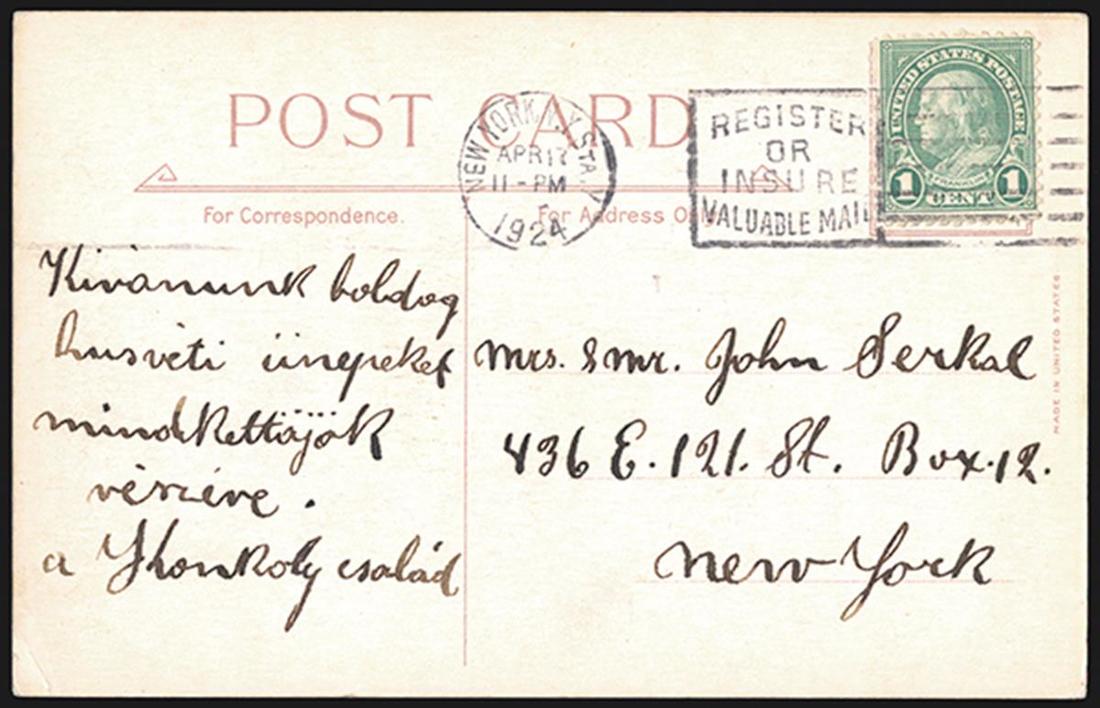 POST CARD
NEW YORK, N.Y. STA. V
APR 17
11-PM
1924
REGISTER
OR
INSURE
VALUABLE MAIL
UNITED STATES POSTAGE
FRANKLIN
1 CENT 1
For Correspondence.
For Address Only
Kivanunk boldog
husvéti ünepeket
mindkettöjök
részéve.
a Yhonkoly család
Mrs. & Mr. John Serkal
436 E. 121. St. Box. 12.
New York
MADE IN UNITED STATES